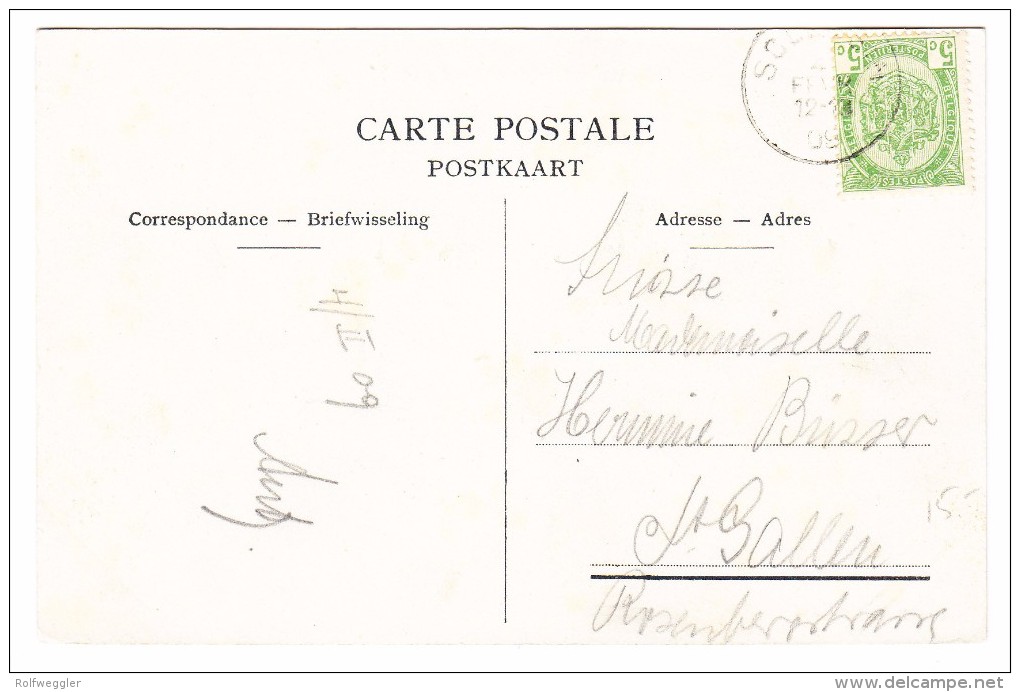 CARTE POSTALE
POSTKAART
Correspondance — Briefwisseling
Adresse — Adres
5 c POSTERIJEN 5 c
BELGIQUE
POSTES
12-
Mademoiselle
Hermine Büsser
St Gallen
Rosenbergstrasse
4/II 09
Rolfweggler
www.delcampe.net